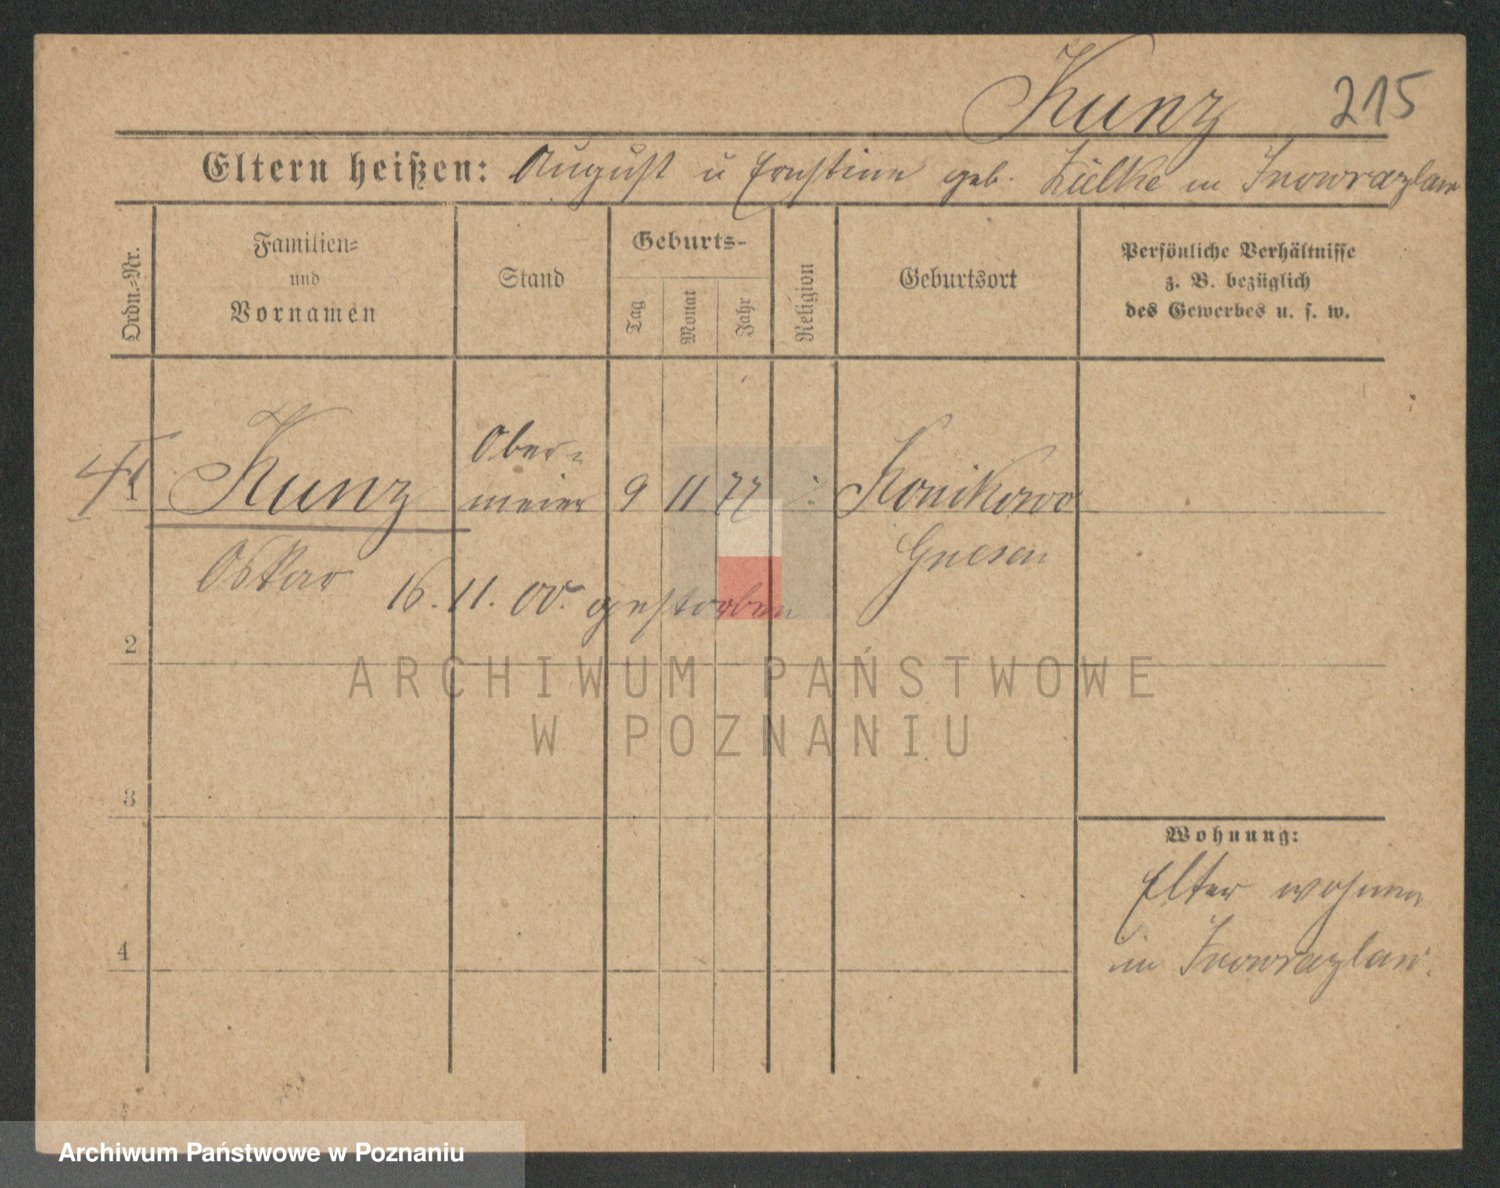 Kunz 215
Eltern heißen: August u Ernstine geb. Zülke in Inowrazlaw
Ordn.-Nr.
Familien-
und
Vornamen
Stand
Geburts-
Tag
Monat
Jahr
Religion
Geburtsort
Persönliche Verhältnisse
z. B. bezüglich
des Gewerbes u. s. w.
1 Kunz Ober-
meier 9 11 77 Konikowo
Oskar Gnesen
16. 11. 00. gestorben
2
ARCHIWUM PAŃSTWOWE
W POZNANIU
3
Wohnung:
Elter wohnen
in Inowrazlaw.
4
Archiwum Państwowe w Poznaniu